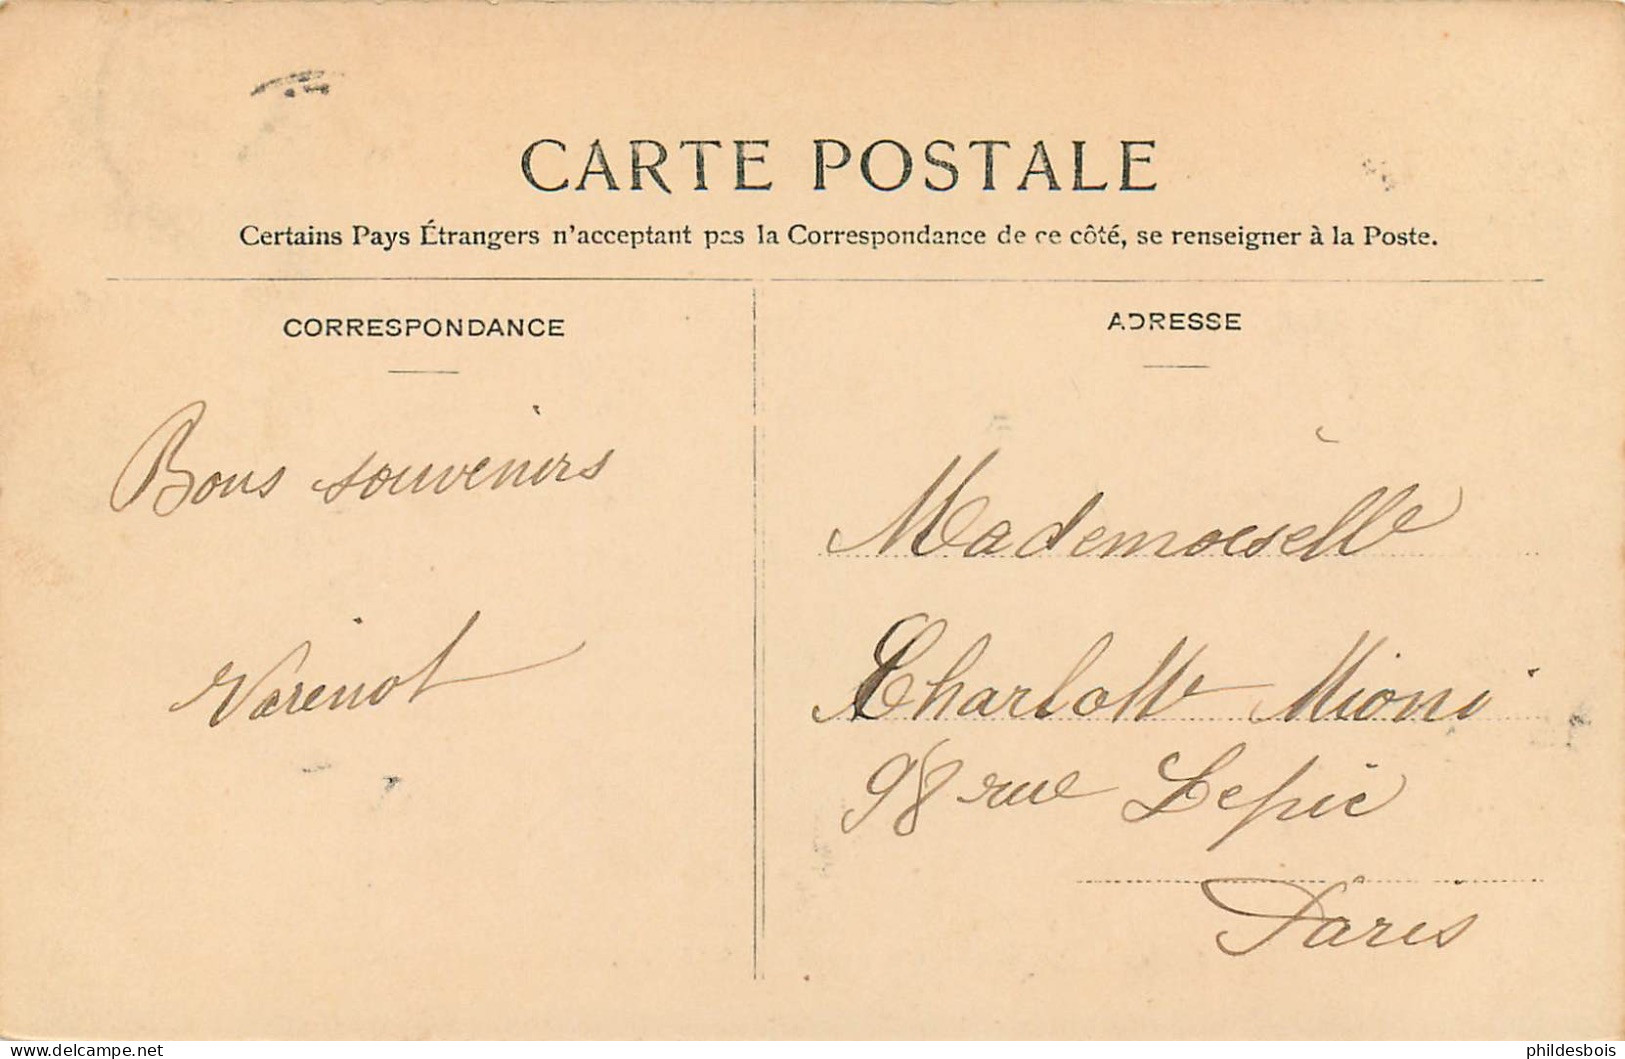 CARTE POSTALE
Certains Pays Étrangers n'acceptant pas la Correspondance de ce côté, se renseigner à la Poste.
CORRESPONDANCE
Bons souvenirs
Varinot
ADRESSE
Mademoiselle
Charlotte Mioni
98 rue Lepic
Paris
www.delcampe.net
phildesbois